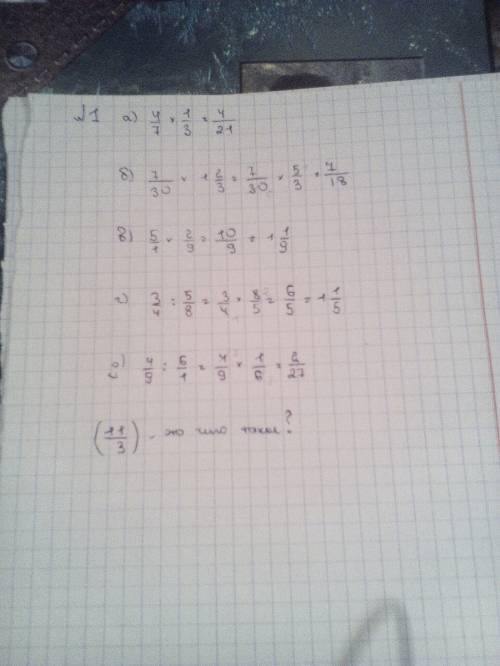 №1 а) 4/7 × 1/3 = 4/21
б) 7/30 × 1 2/3 = 7/30 × 5/3 = 7/18
в) 5/1 × 2/9 = 10/9 = 1 1/9
г) 3/4 : 5/8 = 3/4 × 8/5 = 6/5 = 1 1/5
4/9 : 6/1 = 4/9 × 1/6 = 2/27
(11/3) - это что такое?